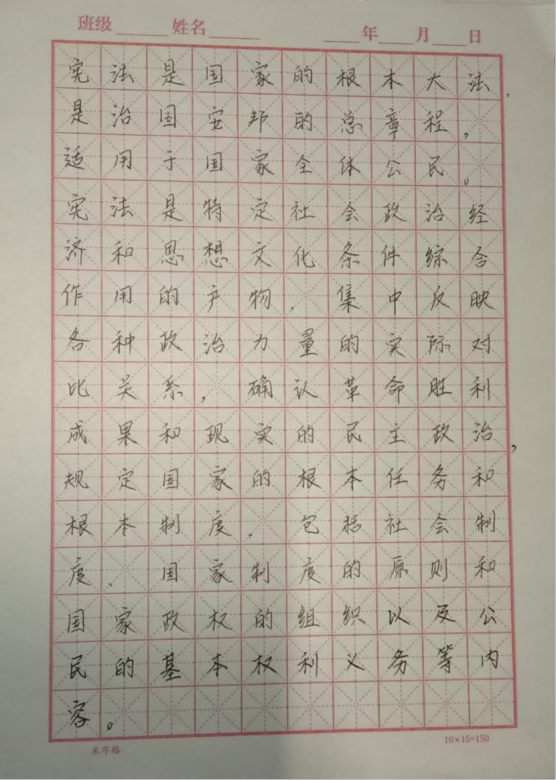 班级______姓名______ ____年____月____日
宪法是国家的根本大法，
是治国安邦的总章程，
适用于国家全体公民。
宪法是特定社会政治经
济和思想文化条件综合
作用的产物，集中反映
各种政治力量的实际对
比关系，确认革命胜利
成果和现实的民主政治，
规定国家的根本任务和
根本制度，包括社会制
度、国家制度的原则和
国家政权的组织以及公
民的基本权利义务等内
容。
米字格 10×15=150